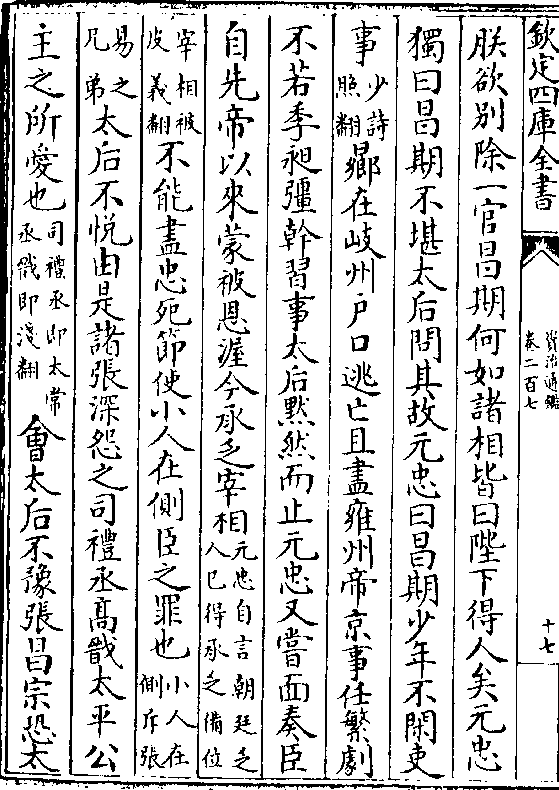 欽定四庫全書
資治通鑑
卷二百七
十七
朕欲别除一官昌期何如諸相皆曰陛下得人矣元忠
獨曰昌期不堪太后問其故元忠曰昌期少年不閑吏
事少詩照翻曏在岐州户口逃亡且盡雍州帝京事任繁劇
不若季昶彊幹習事太后黙然而止元忠又嘗面奏臣
自先帝以來蒙被恩渥今承乏宰相元忠自言朝廷乏人已得承乏備位
宰相被皮義翻不能盡忠死節使小人在側臣之罪也小人在側斥張
易之兄弟太后不悦由是諸張深怨之司禮丞髙戩太平公
主之所愛也司禮丞即太常丞戩即淺翻會太后不豫張昌宗恐太